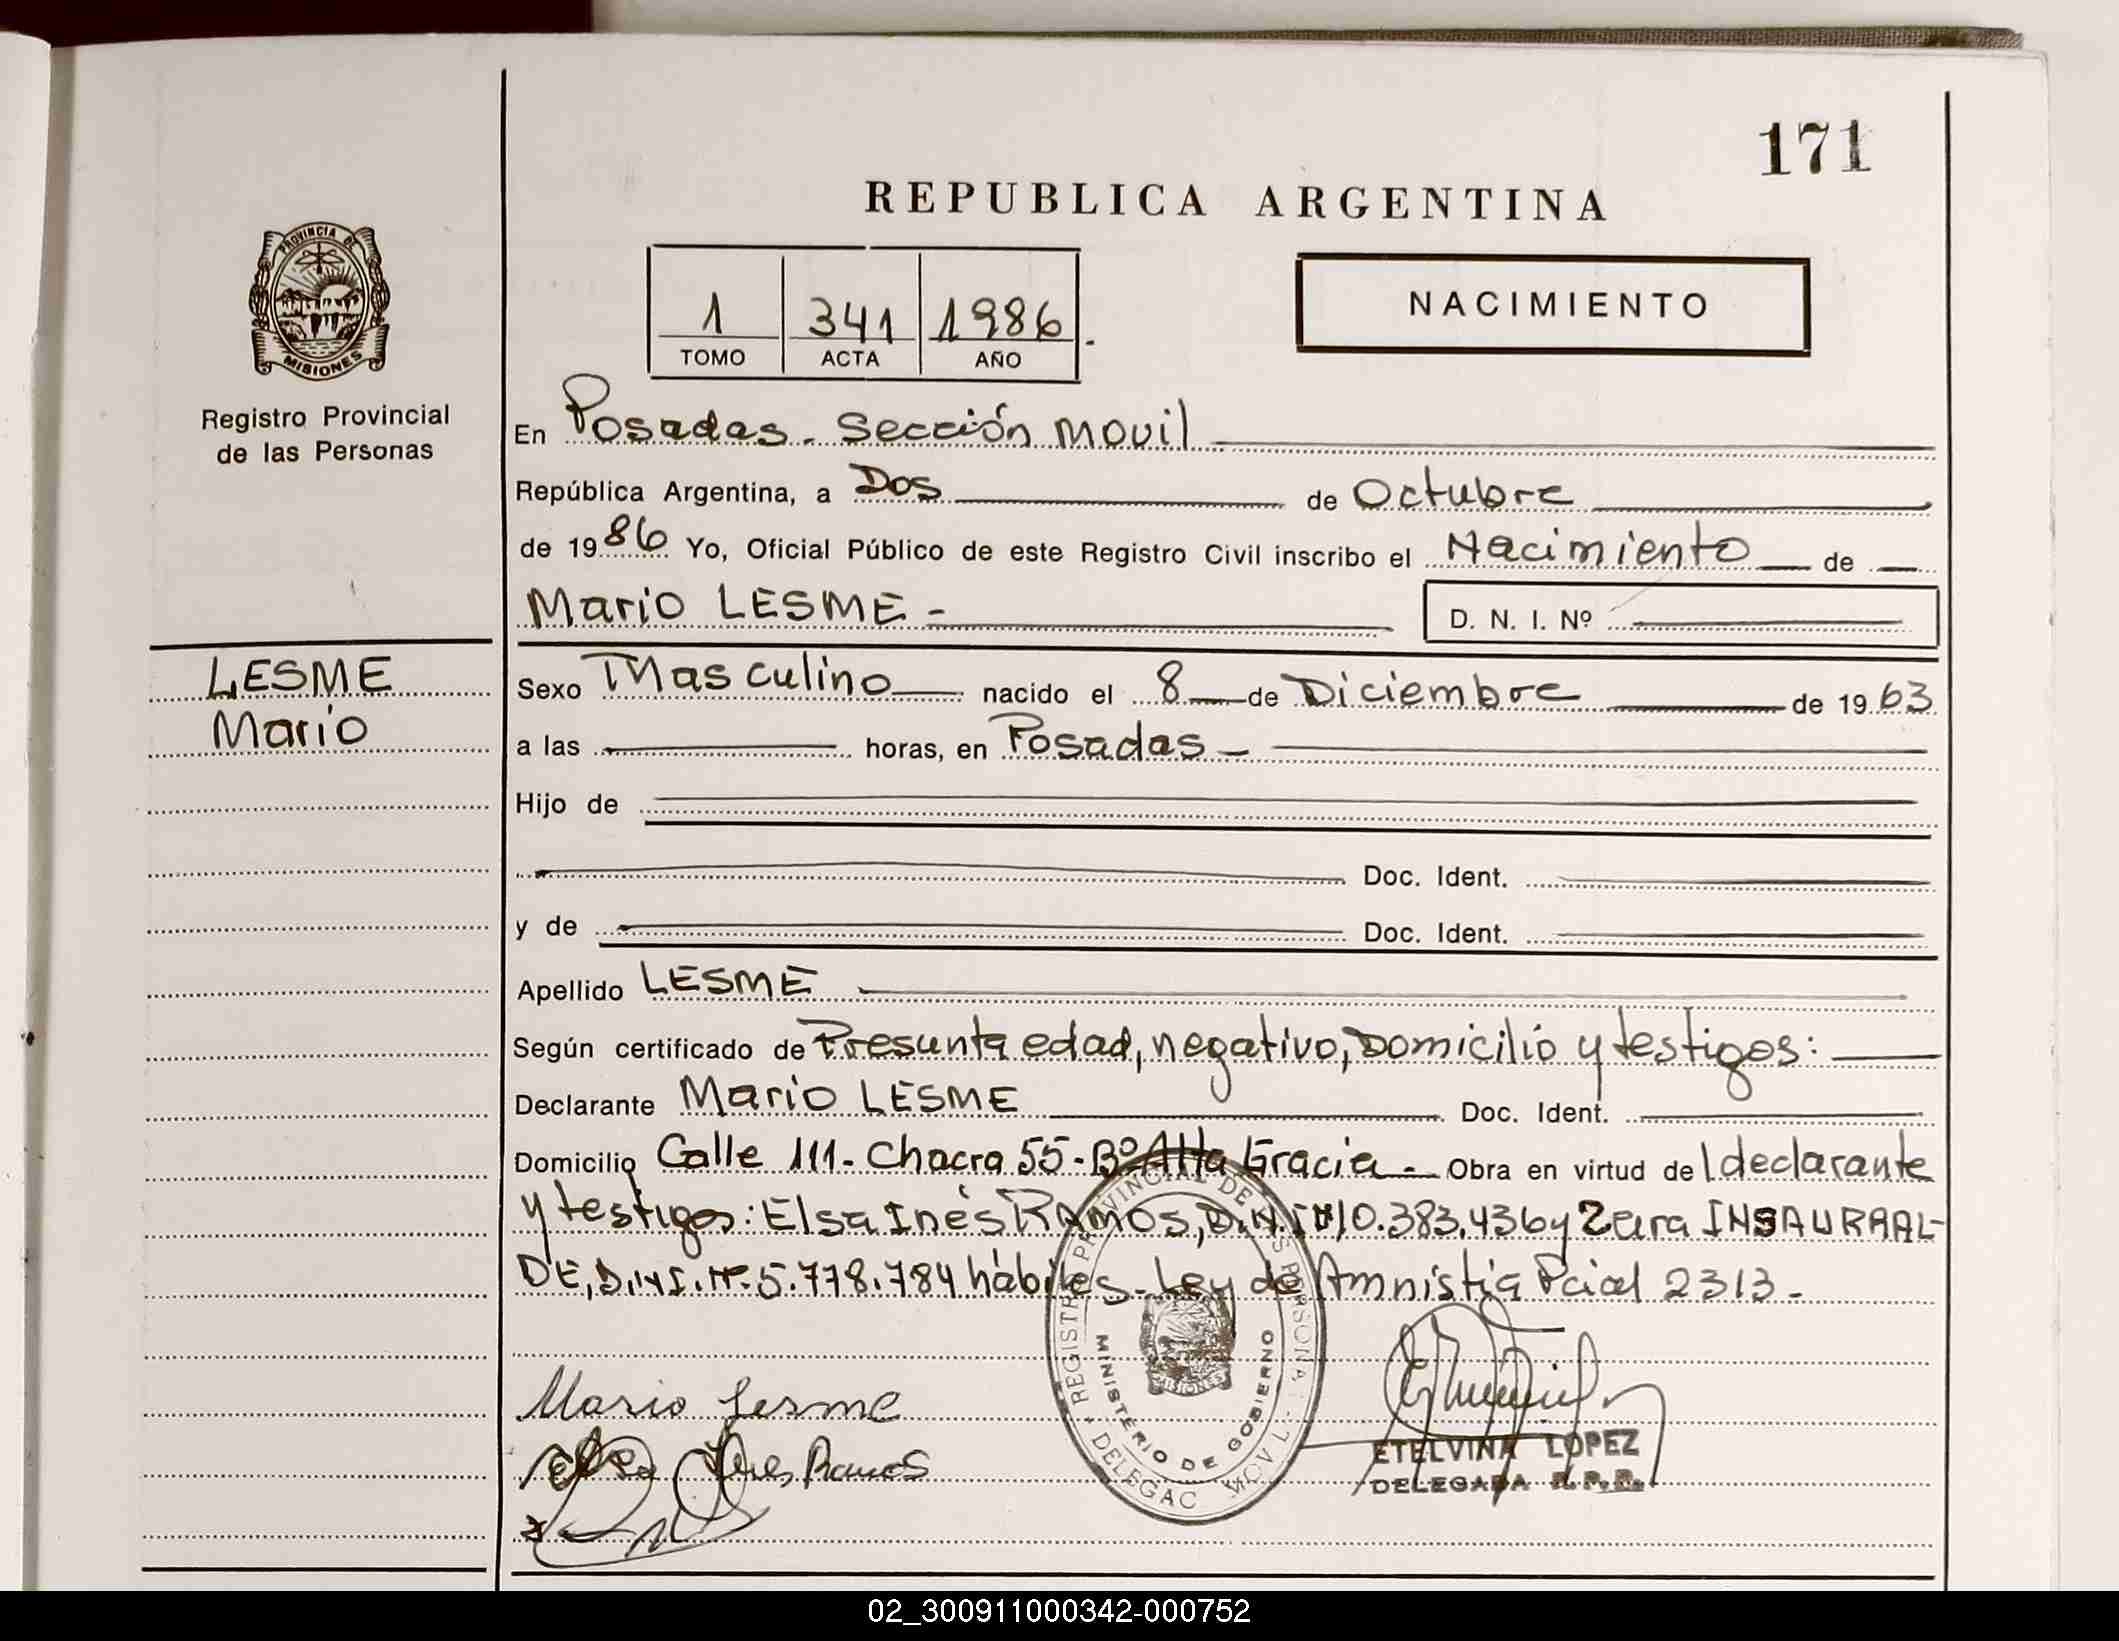 171
REPUBLICA ARGENTINA
PROVINCIA DE
MISIONES
Registro Provincial
de las Personas
1 341 1986
TOMO ACTA AÑO
NACIMIENTO
En Posadas. Sección movil
República Argentina, a Dos de Octubre
de 1986 Yo, Oficial Público de este Registro Civil inscribo el Nacimiento de
Mario LESME -
D. N. I. Nº
LESME
Mario
Sexo Masculino nacido el 8 de Diciembre de 1963
a las horas, en Posadas -
Hijo de
Doc. Ident.
y de Doc. Ident.
Apellido LESME
Según certificado de Presunta edad, negativo, Domicilio y testigos:
Declarante Mario LESME Doc. Ident.
Domicilio Calle 111 - Chacra 55 - Bº Alta Gracia - Obra en virtud de l declarante
y testigos: Elsa Inés RAMOS, D.N.I. Nº 10.383.436 y INSAURRAL-
DE, D.N.I. Nº 5.778.784 hábiles - Ley de Amnistia Pcial 2313 -
REGISTRO PROVINCIAL DE LAS PERSONAS
MINISTERIO DE GOBIERNO
MISIONES
DELEGAC MOVIL
Mario Lesme
Ines Ramos
ETELVINA LOPEZ
DELEGADA R.P.P.
02_300911000342-000752